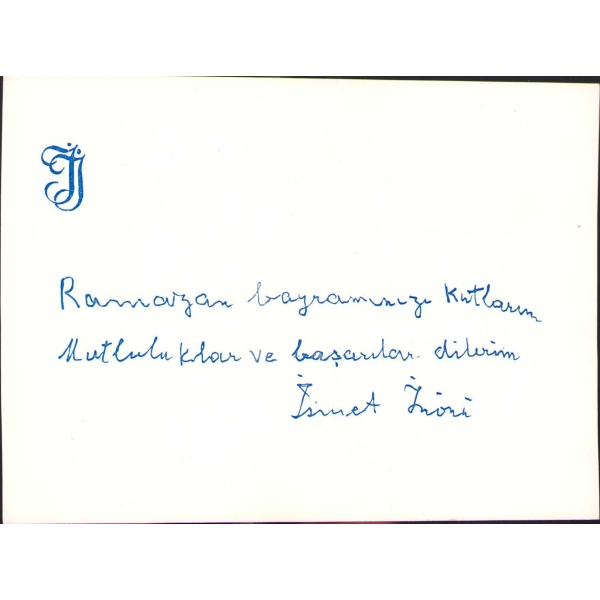 İİ
Ramazan bayramınızı kutlarım
Mutluluklar ve başarılar dilerim
İsmet İnönü